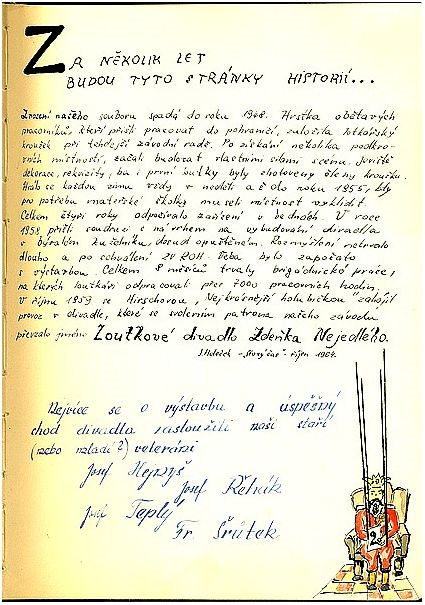 ZA NĚKOLIK LET
BUDOU TYTO STRÁNKY HISTORIÍ...
Zrození našeho souboru spadá do roku 1948. Hrstka obětavých
pracovníků, kteří přišli pracovat do pohraničí, založila loutkářský
kroužek při tehdejší závodní radě. Po získání několika podkro-
vních místností, začali budovat vlastními silami scénu. Jeviště
dekorace, rekvizity, ba i první loutky byly zhotoveny členy kroužku.
Hrálo se každou zimu vždy v neděli a až do roku 1955, kdy
pro potřebu mateřské školky museli místnost vyklidit.
Celkem čtyři roky odpočívalo zařízení v bednách. V roce
1958 přišli soudruzi s návrhem na vybudování divadla
v bývalém kuželníku, dosud opuštěném. Rozmýšlení netrvalo
dlouho a po schválení ZV ROH-Třeba bylo započato
s výstavbou. Celkem 8 měsíců trvaly brigádnické práce,
na kterých loutkáři odpracovali přes 7000 pracovních hodin.
V říjnu 1959 se Hirschovou „Nejkrásnější holubičkou" zahájil
provoz v divadle, které se svolením patrona našeho závodu
převzalo jméno Loutkové divadlo Zdeňka Nejedlého.
J. Holeček - říjen 1964.
Nejvíce se o výstavbu a úspěšný
chod divadla zasloužili naši staří
(nebo mladí?) veteráni
Josef Hejnyš
Josef Řehák
Josef Teplý
Fr. Šrůtek
2